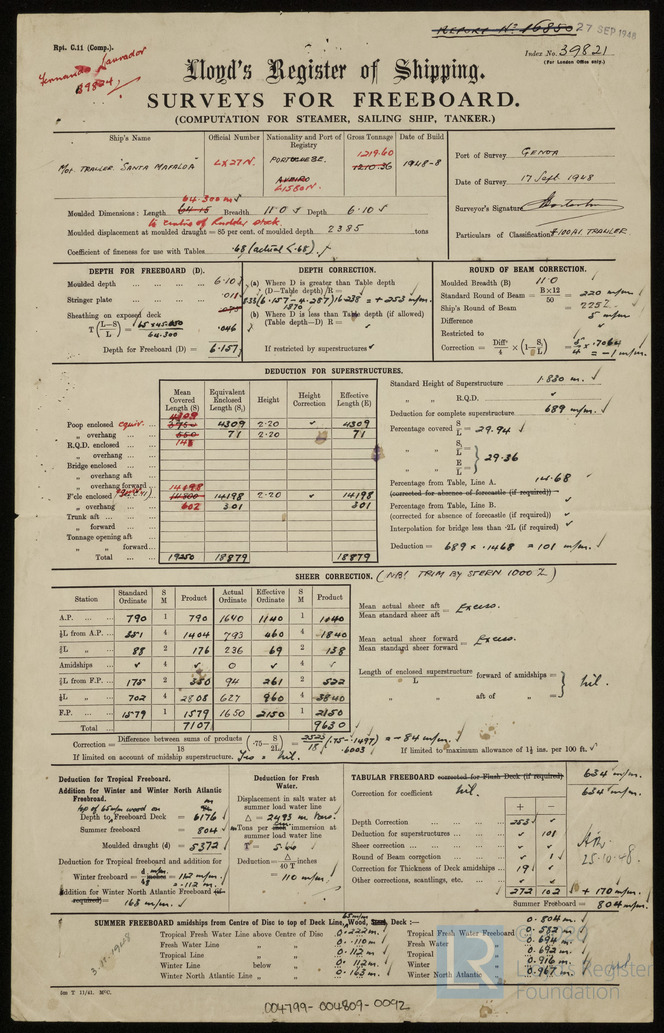 REPORT No 16850 27 SEP 1948
Rpt. C.11 (Comp.).
Index No. 39821
(For London Office only.)
Fernando Lavrador
39804
Lloyd's Register of Shipping.
SURVEYS FOR FREEBOARD.
(COMPUTATION FOR STEAMER, SAILING SHIP, TANKER.)
Ship's Name Official Number Nationality and Port of Registry Gross Tonnage Date of Build
Mot. Trawler "Santa Mafalda" LX27N. PORTUGUESE. 1219.60 1948-8
AVEIRO 1210.36
LISBON.
Port of Survey GENOA
Date of Survey 17 Sept. 1948
Surveyor's Signature
Particulars of Classification +100A1. TRAWLER
64.300m
Moulded Dimensions: Length 64.15 Breadth 11.0 Depth 6.10
to centre of Rudder stock
Moulded displacement at moulded draught = 85 per cent. of moulded depth 2385 tons
Coefficient of fineness for use with Tables .68 (actual <.68).
DEPTH FOR FREEBOARD (D).
Moulded depth 6.10
Stringer plate .011
Sheathing on exposed deck
T (L—S / L) = 65 × 45.050 / 64.300 .046
Depth for Freeboard (D) = 6.157
DEPTH CORRECTION.
(a) Where D is greater than Table depth
(D—Table depth) R =
(6.157 - 4.287) 16238 = + 253 m/m.
1870
(b) Where D is less than Table depth (if allowed)
(Table depth—D) R =
If restricted by superstructures
ROUND OF BEAM CORRECTION.
Moulded Breadth (B) 11.0
Standard Round of Beam = B×12 / 50 = 220 m/m.
Ship's Round of Beam = 225
Difference 5 m/m
Restricted to
Correction = Diff / 4 × (1 - S₁ / L) = 5/4 × .7064 = - 1 m/m.
DEDUCTION FOR SUPERSTRUCTURES.
Mean Covered Length (S) Equivalent Enclosed Length (S₁) Height Height Correction Effective Length (E)
4309
Poop enclosed equiv. 3950 4309 2.20 4309
„ overhang 550 71 2.20 71
R.Q.D. enclosed 143
„ overhang
Bridge enclosed
„ overhang aft
„ overhang forward
14198
F'cle enclosed 14800 14198 2.20 14198
„ overhang 602 301 301
Trunk aft
„ forward
Tonnage opening aft
„ „ forward
Total 19250 18879 18879
Standard Height of Superstructure 1.830 m.
„ „ R.Q.D.
Deduction for complete superstructure 689 m/m.
Percentage covered S / L = 29.94
„ „ S₁ / L
„ „ E / L = 29.36
Percentage from Table, Line A. 14.68
(corrected for absence of forecastle (if required))
Percentage from Table, Line B.
(corrected for absence of forecastle (if required))
Interpolation for bridge less than ·2L (if required)
Deduction = 689 × .1468 = 101 m/m.
SHEER CORRECTION. (NB! TRIM BY STERN 1000 )
Station Standard Ordinate S M Product Actual Ordinate Effective Ordinate S M Product
A.P. 790 1 790 1640 1140 1 1140
⅙L from A.P. 351 4 1404 793 460 4 1840
⅓L „ 88 2 176 236 69 2 138
Amidships 4 0 4
⅓L from F.P. 175 2 350 94 261 2 522
⅙L „ 702 4 2808 627 960 4 3840
F.P. 1579 1 1579 1650 2150 1 2150
Total 7107 9630
Mean actual sheer aft / Mean standard sheer aft = Excess.
Mean actual sheer forward / Mean standard sheer forward = Excess.
Length of enclosed superstructure / L forward of amidships =
„ „ aft of „ = nil.
Correction = Difference between sums of products / 18 (·75 - S / 2L) = 2523 / 18 (.75 - .1497) = - 84 m/m.
.6003
If limited on account of midship superstructure. Yes = Nil.
If limited to maximum allowance of 1½ ins. per 100 ft.
Deduction for Tropical Freeboard.
Addition for Winter and Winter North Atlantic Freeboard.
top of 65 m/m wood on
Depth to Freeboard Deck = 6176
Summer freeboard = 804
Moulded draught (d) = 5372
Deduction for Tropical freeboard and addition for
Winter freeboard = d / 48 = 112 m/m.
= .112 m.
Addition for Winter North Atlantic Freeboard (if required) =
163 m/m.
Deduction for Fresh Water.
Displacement in salt water at summer load water line
Δ = 2493 m tons
Tons per cm. immersion at summer load water line
T = 5.66
Deduction = Δ / 40 T inches
= 110 m/m.
TABULAR FREEBOARD corrected for Flush Deck (if required) 634 m/m.
Correction for coefficient nil. 634 m/m.
+ —
Depth Correction 253
Deduction for superstructures 101
Sheer correction
Round of Beam correction 1
Correction for Thickness of Deck amidships 19
Other corrections, scantlings, etc.
272 102 + 170 m/m.
Summer Freeboard = 804 m/m.
25.10.48.
SUMMER FREEBOARD amidships from Centre of Disc to top of Deck Line, 65 m/m Wood, Steel, Deck :— 0.804 m.
Tropical Fresh Water Line above Centre of Disc 0.222 m. Tropical Fresh Water Freeboard 0.582 m.
Fresh Water Line „ „ 0.110 m. Fresh Water „ 0.694 m.
Tropical Line „ „ 0.112 m. Tropical „ 0.692 m.
Winter Line below „ 0.112 m. Winter „ 0.916 m.
Winter North Atlantic Line „ „ 0.163 m. Winter North Atlantic „ 0.967 m.
LR
Lloyd's Register
Foundation
004799-004809-0092